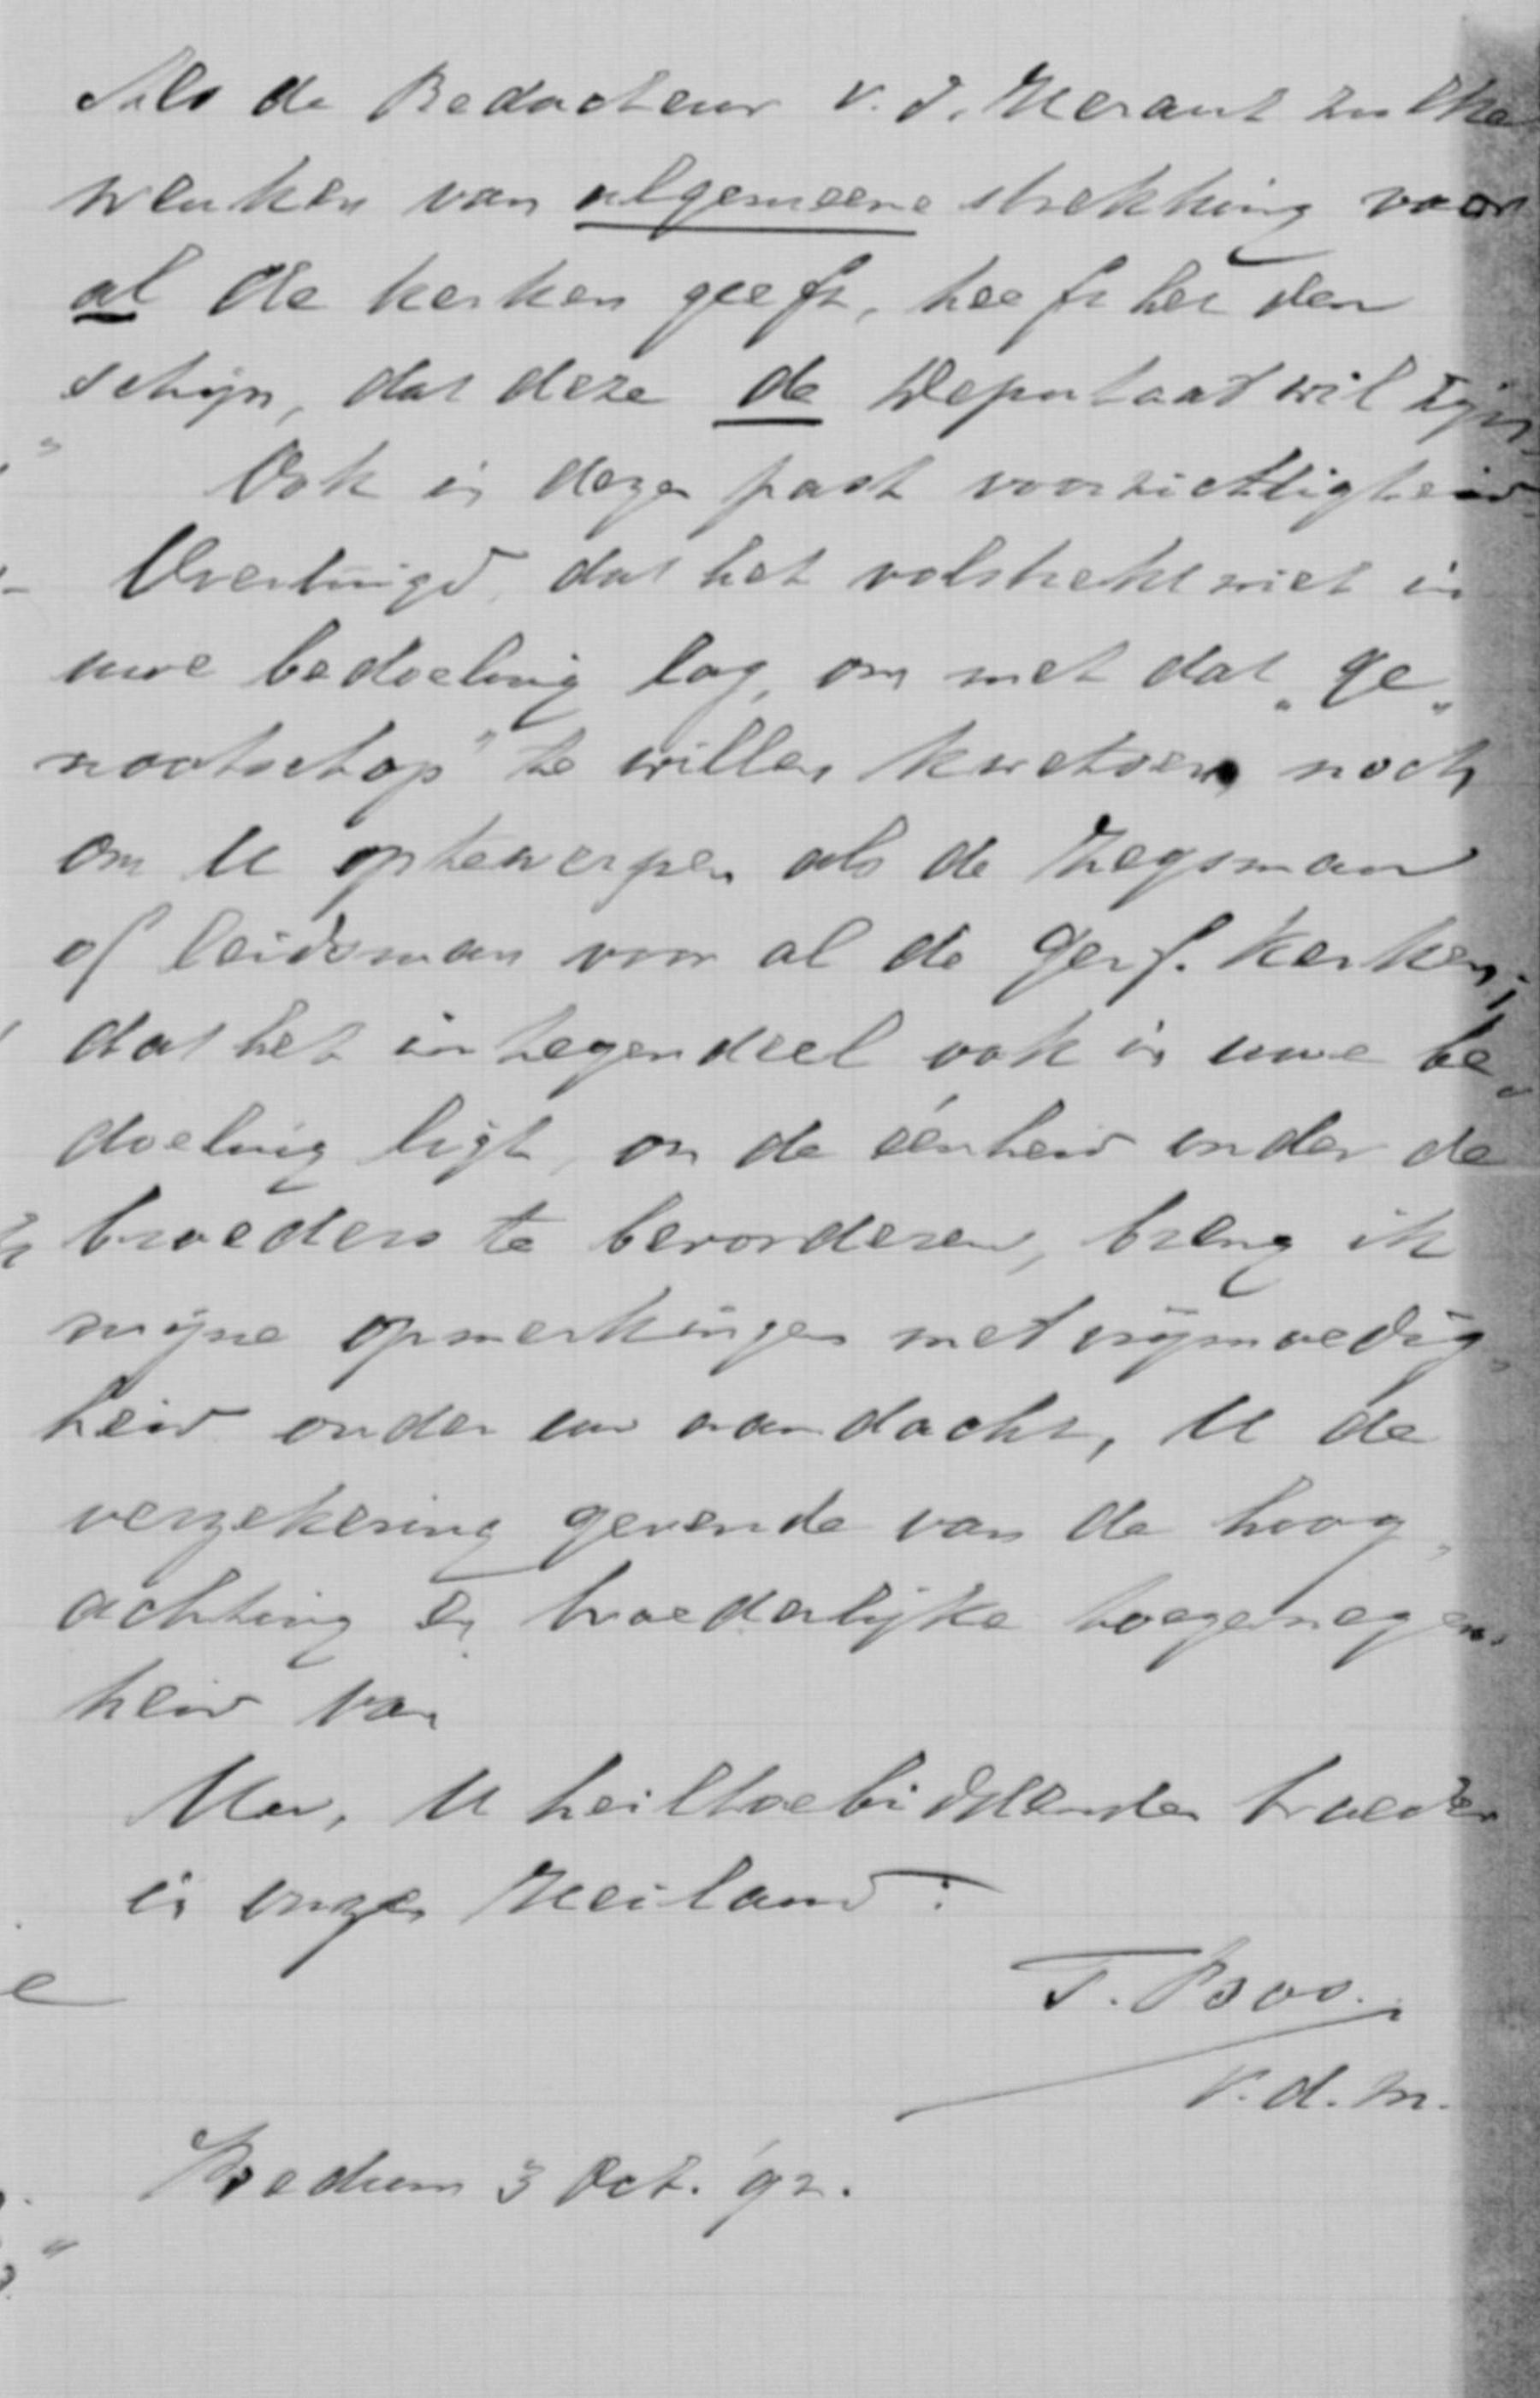 Als de Redacteur v. d. Heraut zulke
wenken van algemeene strekking voor
al de kerken geeft, heeft het den
schijn, dat deze de Deputaat wil zijn.
Ook in dezen past voorzichtigheid.
Overtuigd, dat het volstrekt niet in
uwe bedoeling lag, om met dat „ge„
nootschap" te willen kwetsen, noch
om U optewerpen als de Zegsman
of leidsman voor al de Geref. kerken;
dat het in tegendeel ook in uwe be„
doeling ligt, om de éénheid onder de
broeders te bevorderen, breng ik
mijne opmerkingen met vrijmoedig„
heid onder uw aandacht, U de
verzekering gevende van de hoog„
achting en broederlijke toegenegen„
heid van
Uw, U heiltoebiddenden broeder
in onzen Heiland:
T. Bos.
v. d. m.
Bedum 3 Oct. '92.